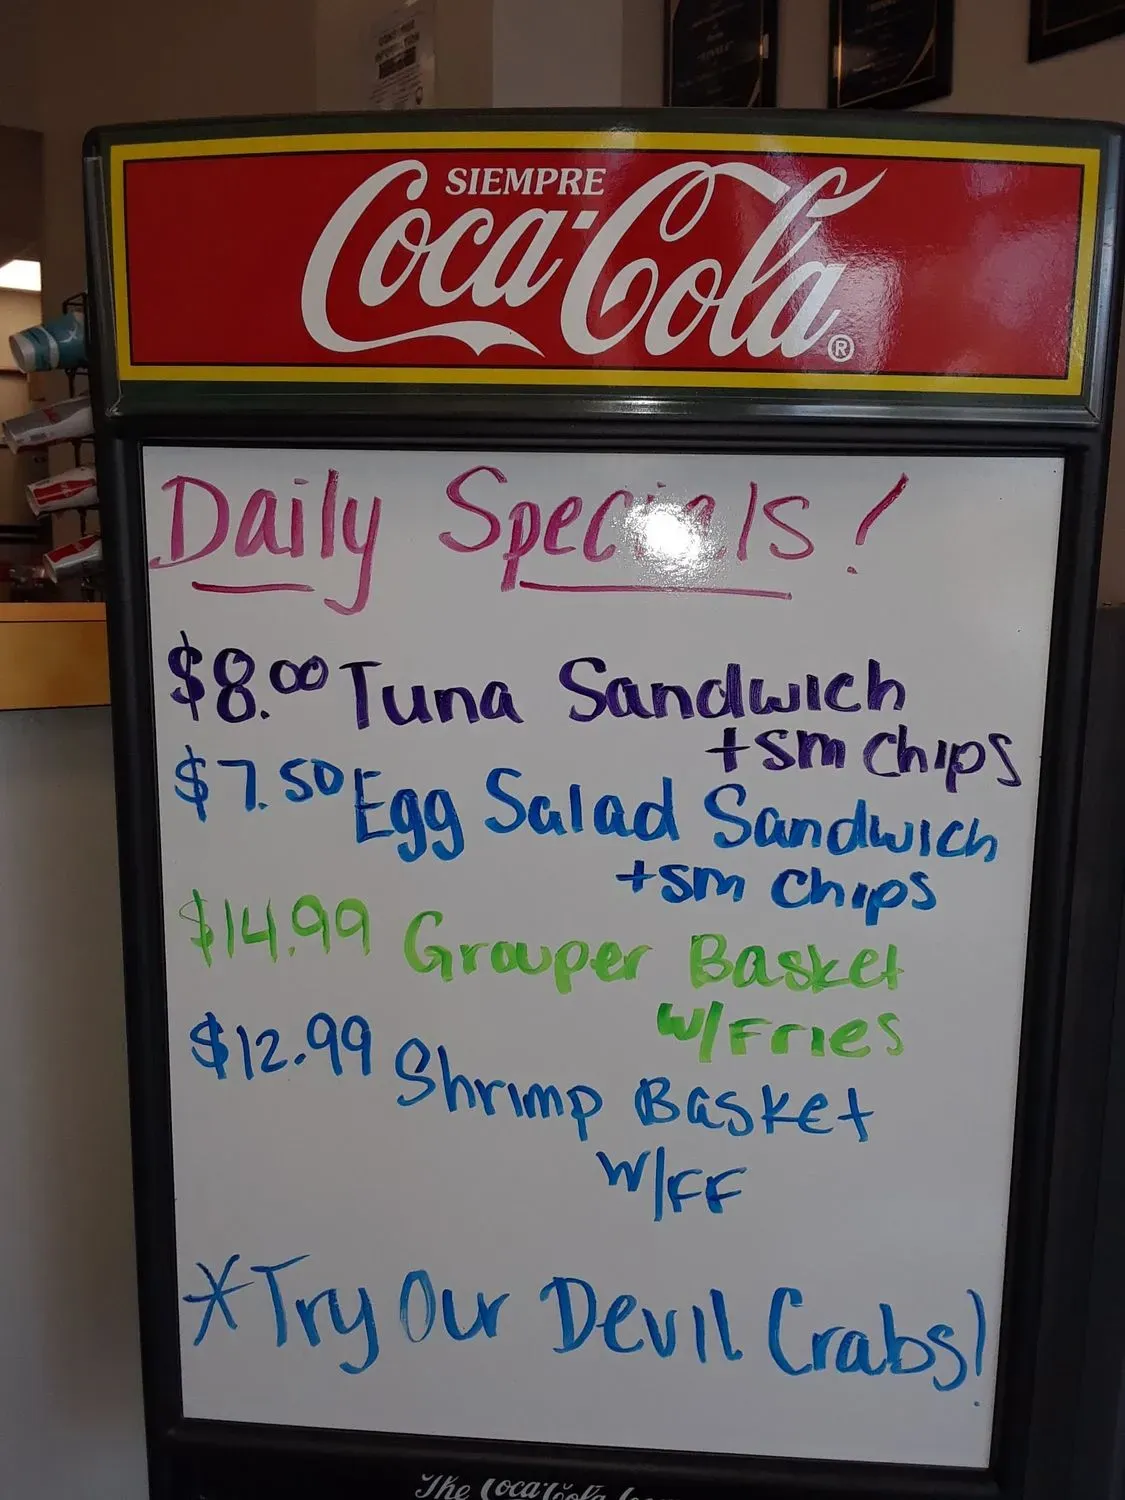 SIEMPRE
Coca-Cola®
Daily Specials!
$8.00 Tuna Sandwich
+ sm chips
$7.50 Egg Salad Sandwich
+ sm chips
$14.99 Grouper Basket
w/Fries
$12.99 Shrimp Basket
w/FF
*Try Our Devil Crabs!
The Coca-Cola